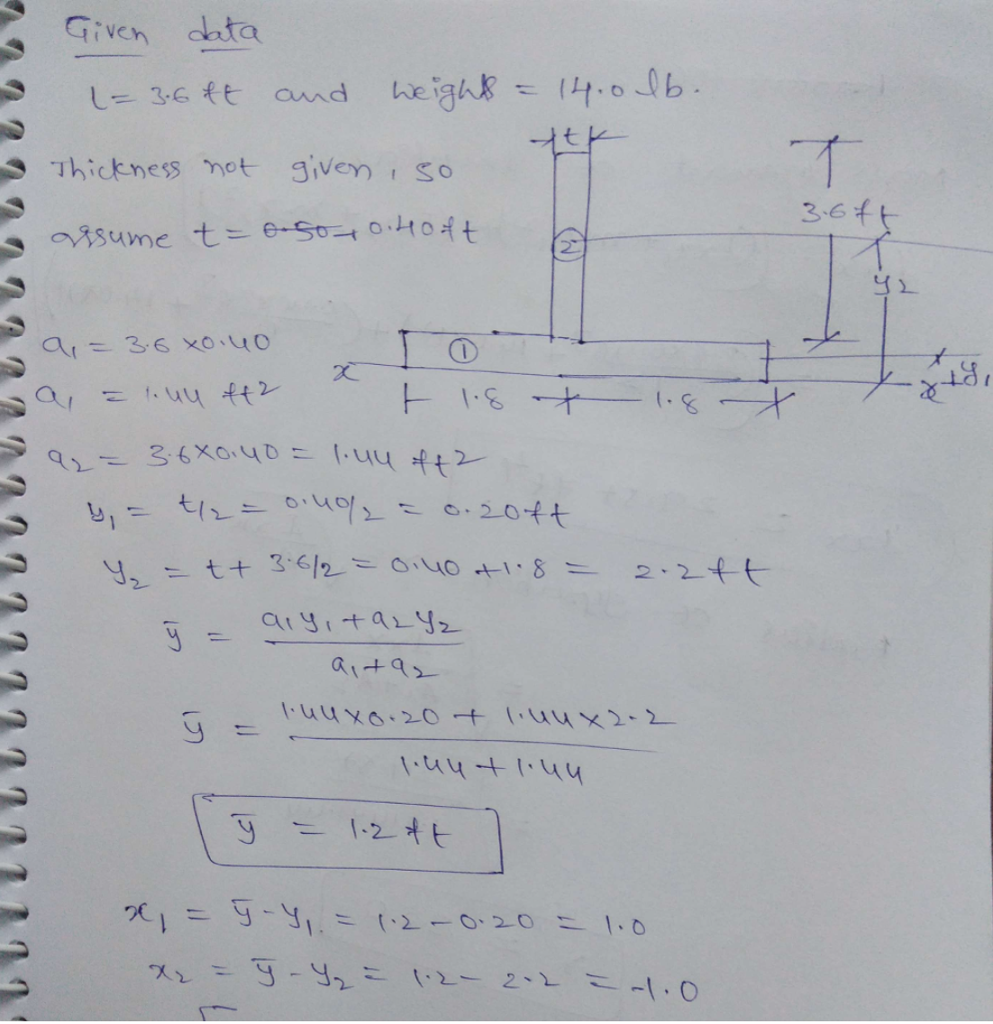 Given data
l = 3.6 ft and weight = 14.0 lb.
t
Thickness not given, so
3.6 ft
assume t = 0.50 0.40 ft
2
y2
a1 = 3.6 x0.40
1
x
x
y1
a1 = 1.44 ft2
1.8
1.8
a2 = 3.6x0.40 = 1.44 ft2
y1 = t/2 = 0.40/2 = 0.20ft
y2 = t + 3.6/2 = 0.40 +1.8 = 2.2 ft
ȳ = a1y1 + a2y2
a1+a2
ȳ = 1.44x0.20 + 1.44x2.2
1.44 + 1.44
ȳ = 1.2 ft
x1 = ȳ - y1 = 1.2 - 0.20 = 1.0
x2 = ȳ - y2 = 1.2 - 2.2 = -1.0